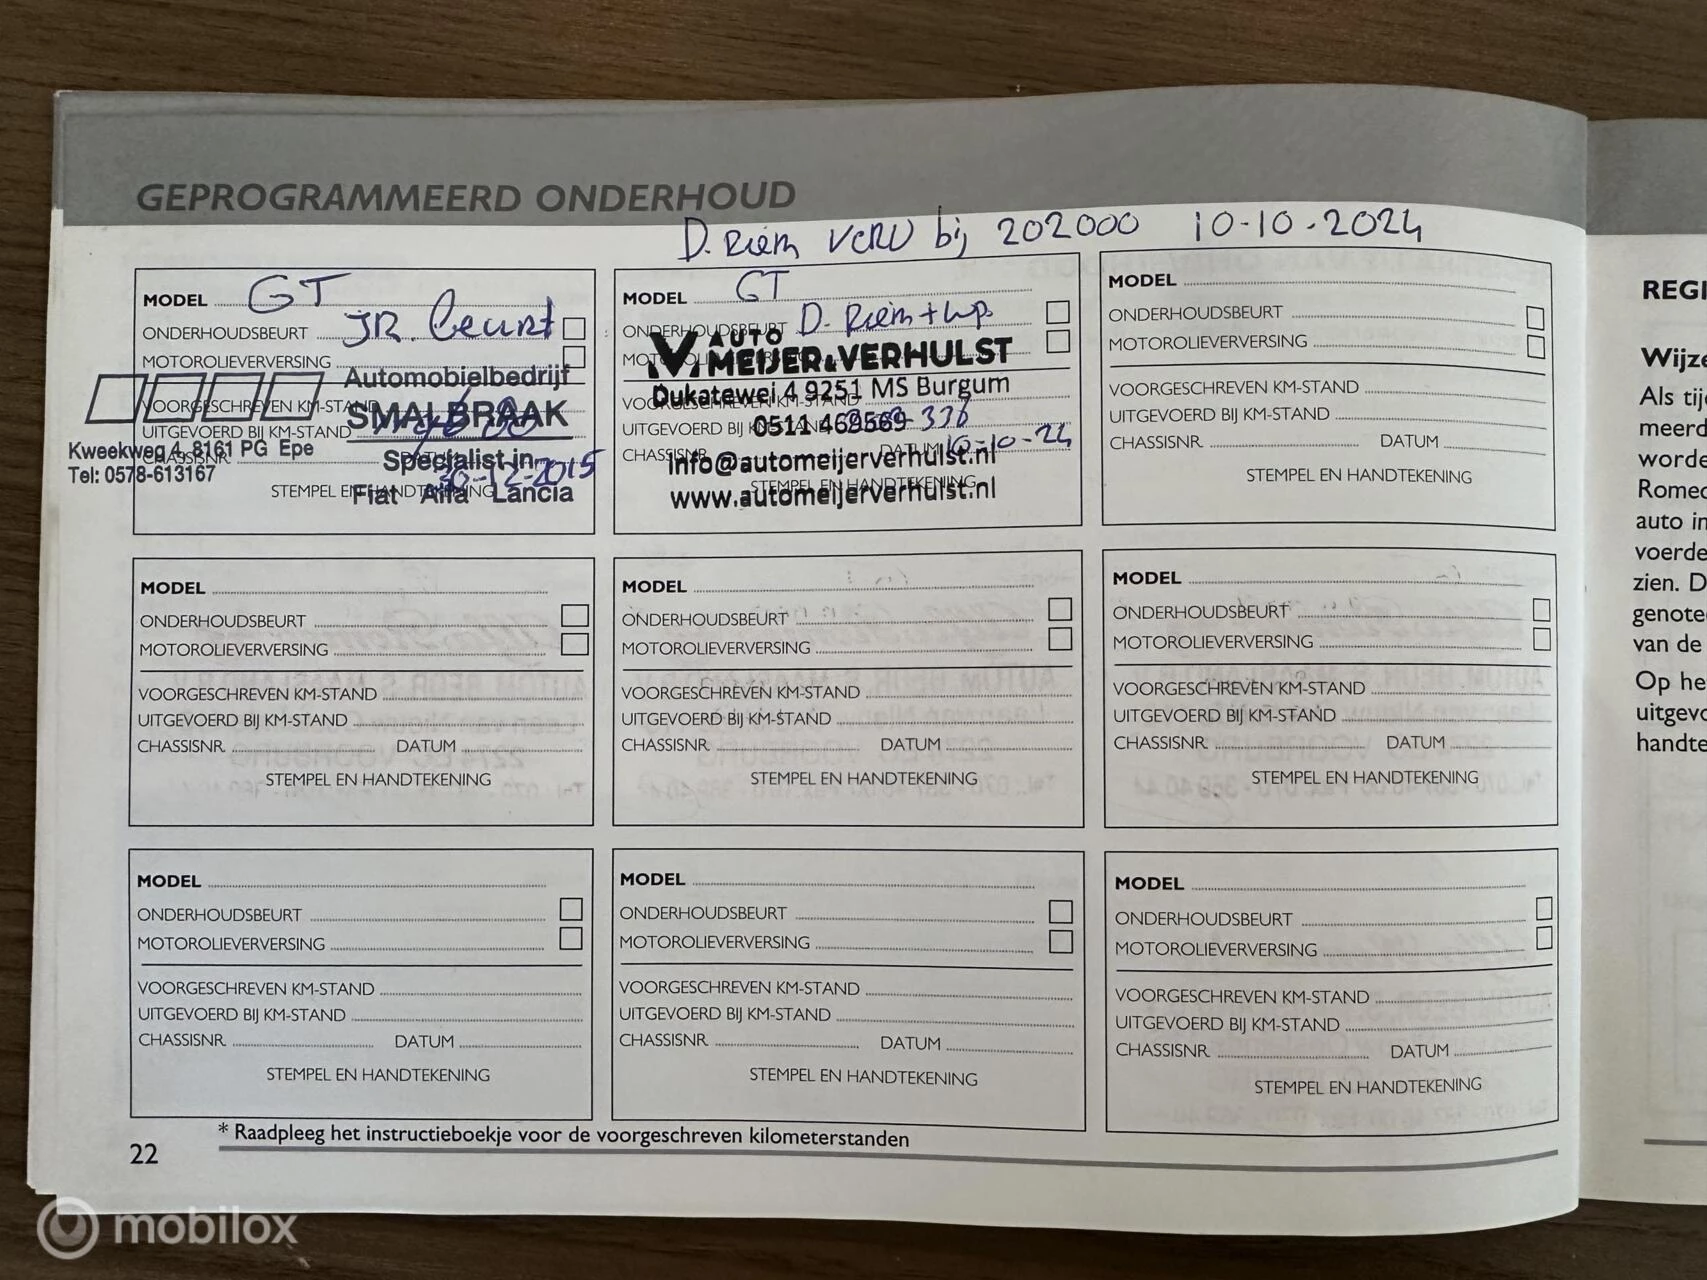 GEPROGRAMMEERD ONDERHOUD
D. Riem VERV bij 202000 10-10-2024
MODEL GT
ONDERHOUDSBEURT JR. Beurt
MOTOROLIEVERVERSING
VOORGESCHREVEN KM-STAND
UITGEVOERD BIJ KM-STAND
CHASSISNR. DATUM 30-12-2015
STEMPEL EN HANDTEKENING
Kweekweg 4, 8161 PG Epe
Tel: 0578-613167
Automobielbedrijf
SMALBRAAK
Specialist in
Fiat Alfa Lancia
MODEL GT
ONDERHOUDSBEURT D. Riem + wp.
VOORGESCHREVEN KM-STAND
UITGEVOERD BIJ KM-STAND
CHASSISNR. DATUM 10-10-24
STEMPEL EN HANDTEKENING
AUTO
MEIJER & VERHULST
Dukatewei 4 9251 MS Burgum
0511 469569
info@automeijerverhulst.nl
www.automeijerverhulst.nl
MODEL
ONDERHOUDSBEURT
MOTOROLIEVERVERSING
VOORGESCHREVEN KM-STAND
UITGEVOERD BIJ KM-STAND
CHASSISNR. DATUM
STEMPEL EN HANDTEKENING
MODEL
ONDERHOUDSBEURT
MOTOROLIEVERVERSING
VOORGESCHREVEN KM-STAND
UITGEVOERD BIJ KM-STAND
CHASSISNR. DATUM
STEMPEL EN HANDTEKENING
MODEL
ONDERHOUDSBEURT
MOTOROLIEVERVERSING
VOORGESCHREVEN KM-STAND
UITGEVOERD BIJ KM-STAND
CHASSISNR. DATUM
STEMPEL EN HANDTEKENING
MODEL
ONDERHOUDSBEURT
MOTOROLIEVERVERSING
VOORGESCHREVEN KM-STAND
UITGEVOERD BIJ KM-STAND
CHASSISNR. DATUM
STEMPEL EN HANDTEKENING
MODEL
ONDERHOUDSBEURT
MOTOROLIEVERVERSING
VOORGESCHREVEN KM-STAND
UITGEVOERD BIJ KM-STAND
CHASSISNR. DATUM
STEMPEL EN HANDTEKENING
MODEL
ONDERHOUDSBEURT
MOTOROLIEVERVERSING
VOORGESCHREVEN KM-STAND
UITGEVOERD BIJ KM-STAND
CHASSISNR. DATUM
STEMPEL EN HANDTEKENING
MODEL
ONDERHOUDSBEURT
MOTOROLIEVERVERSING
VOORGESCHREVEN KM-STAND
UITGEVOERD BIJ KM-STAND
CHASSISNR. DATUM
STEMPEL EN HANDTEKENING
* Raadpleeg het instructieboekje voor de voorgeschreven kilometerstanden
22
REGI
Wijze
Als tij
meerd
worde
Romeo
auto in
voerde
zien. D
genote
van de
Op he
uitgevo
handte
mobilox